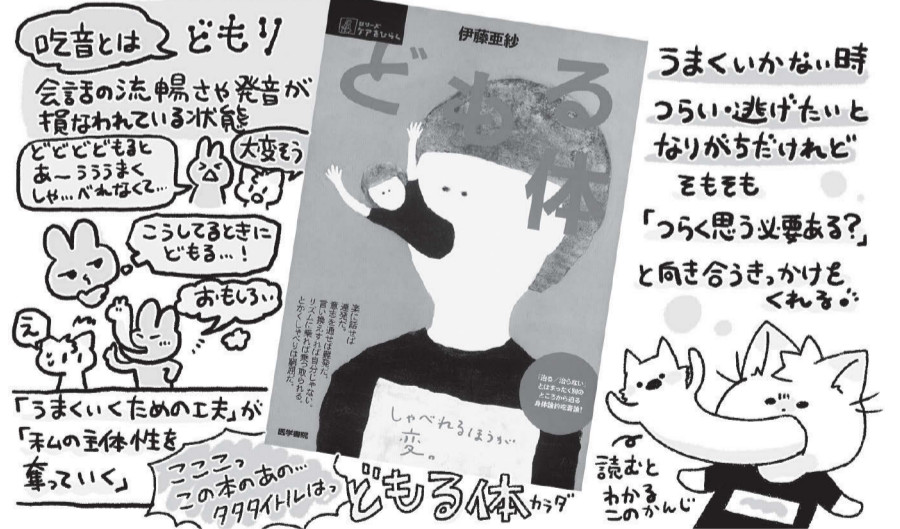 吃音とは
どもり
会話の流暢さや発音が
損なわれている状態
どどどどもると
あ〜うううまく
しゃ…べれなくて…
大変そう
こうしてるときに
どもる…!
おもしろい
え
「うまくいくための工夫」が
「私の主体性を
奪っていく」
こここっ
この本のあの…
タタタイトルはっ
どもる体カラダ
シリーズ
ケアをひらく
伊藤亜紗
どもる
体
楽に話せば
連発だ。
意志を通せば難発だ。
言い換えすれば自分じゃない。
リズムに乗れば乗っ取られる。
とかくしゃべりは窮屈だ。
「治る/治らない」
とはまったく別の
ところから迫る
身体論的吃音論!
しゃべれるほうが
変。
医学書院
うまくいかない時
つらい・逃げたいと
なりがちだけれど
そもそも
「つらく思う必要ある?」
と向き合うきっかけを
くれる
読むと
わかる
このかんじ